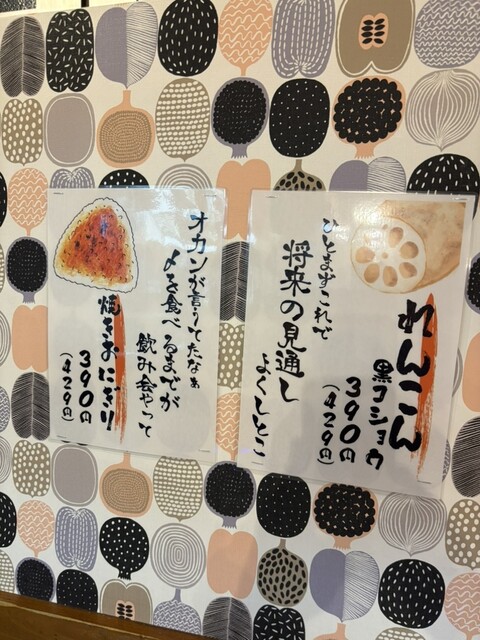 れんこん
黒コショウ
390円
(429円)
ひとまずこれで
将来の見通し
よくしとこ
オカンが言うてたなぁ
〆を食べるまでが
飲み会やって
焼きおにぎり
390円
(429円)